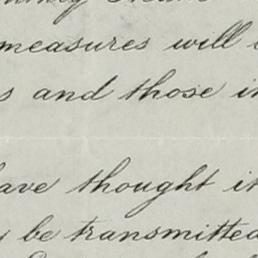 measures will
and those in
have thought it
be transmitted